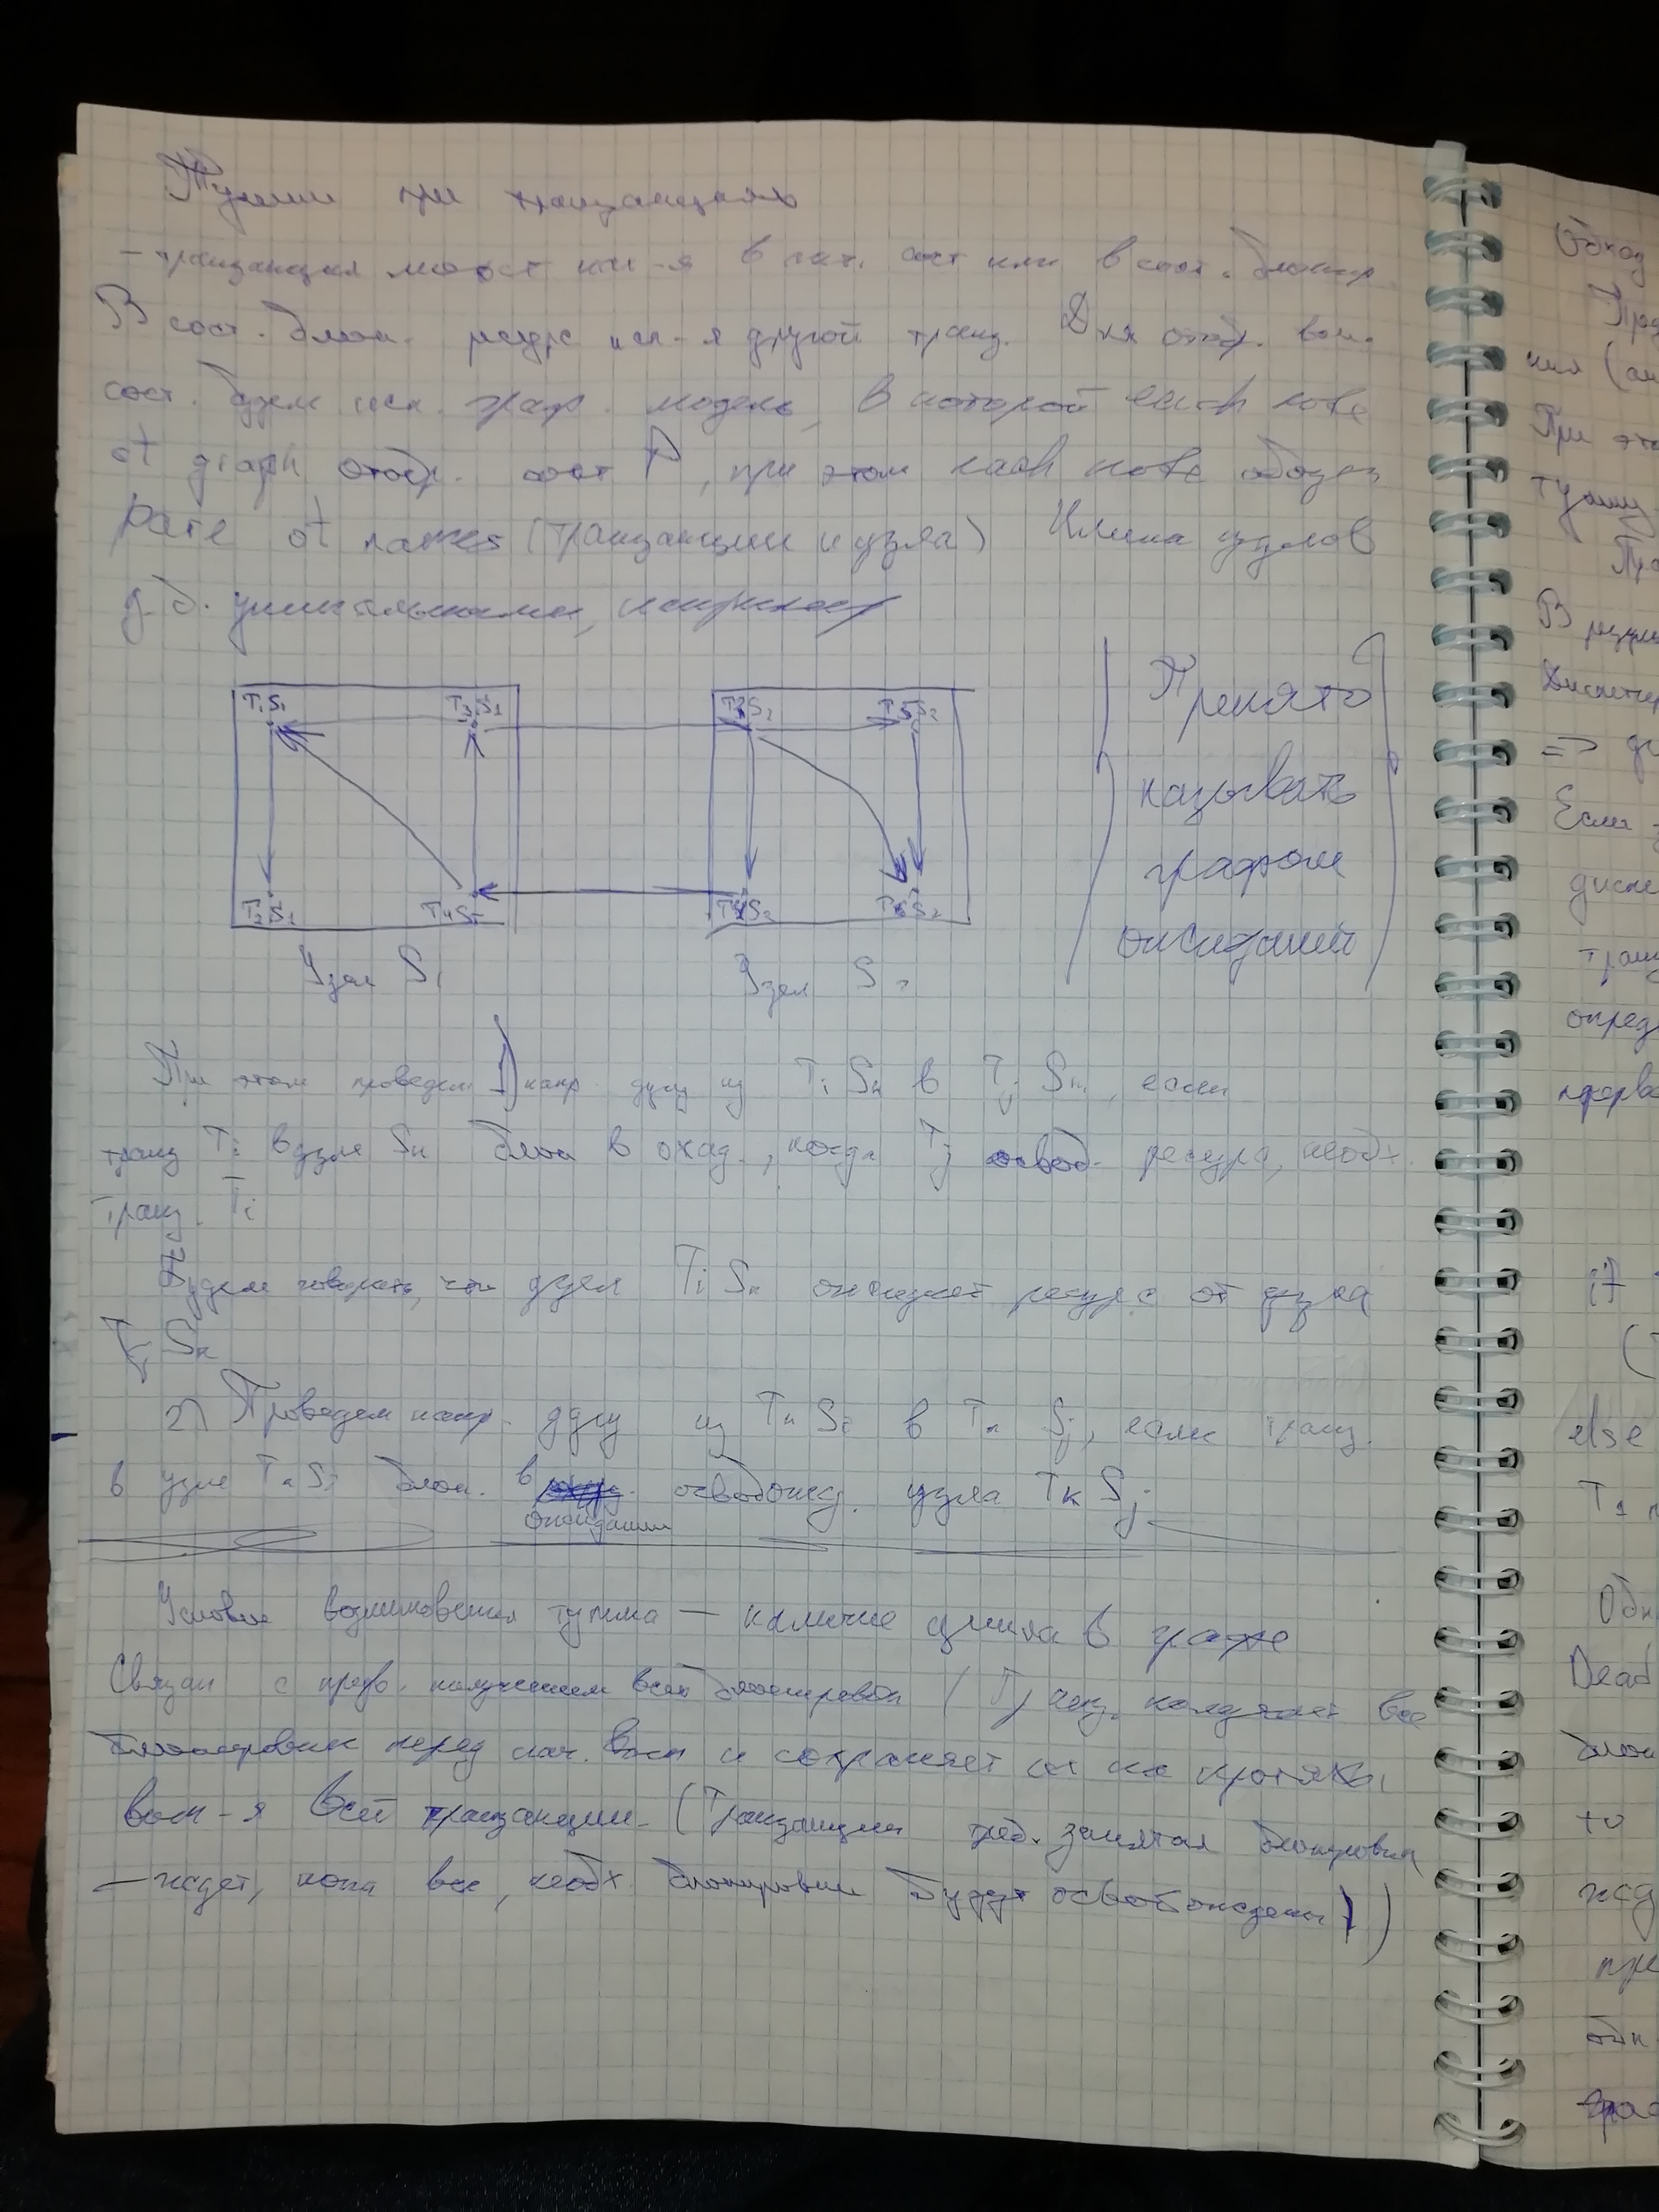 Тупики при транзакциях
– транзакция может нах-я в акт. сост или в сост. блокир
В сост. блок. ресурс исп-я другой транз. Для отобр. вып.
сост. будем исп. граф. модель, в которой each node
of graph отобр. сост P, при этом each node обозн
pare of names (транзакции и узла) Имена узлов
д. б. уникальными,
T1S1 T3S1 T3S2 T5S2
T2S1 T4S1 T4S2 T6S2
Узел S1 Узел S2
Принято
называть
графом
ожиданий
При этом проведем 1) напр. дугу из Ti Sk в Tj Sk, если
транз Ti в узле Sk блок в ожид., когда Tj освоб. ресурс, необх.
транз. Ti
Будем говорить, что узел Ti Sk ожидает ресурс от узла
Tj Sk
2) Проведем напр. дугу из Tk Si в Tk Sj, если транз.
в узле Tk Si блок. в ожидании освобожд. узла Tk Sj
Условие возникновения тупика — наличие цикла в графе
Связан с предв. получением всех блокировок (Транз. получает все
блокировки перед нач. вып и сохраняет их на протяж.
вып-я всей транзакции. (Транзакции треб. занятая блокировка
– ждет, пока все, необх блокировки будут освобождены))
Обход
При это
тупику
В резул
Диспетчер
=>
Если
диспе
транз
опред
прерва
if
(
else
T1
Обн
Dead
блок
to
жд
при
обн